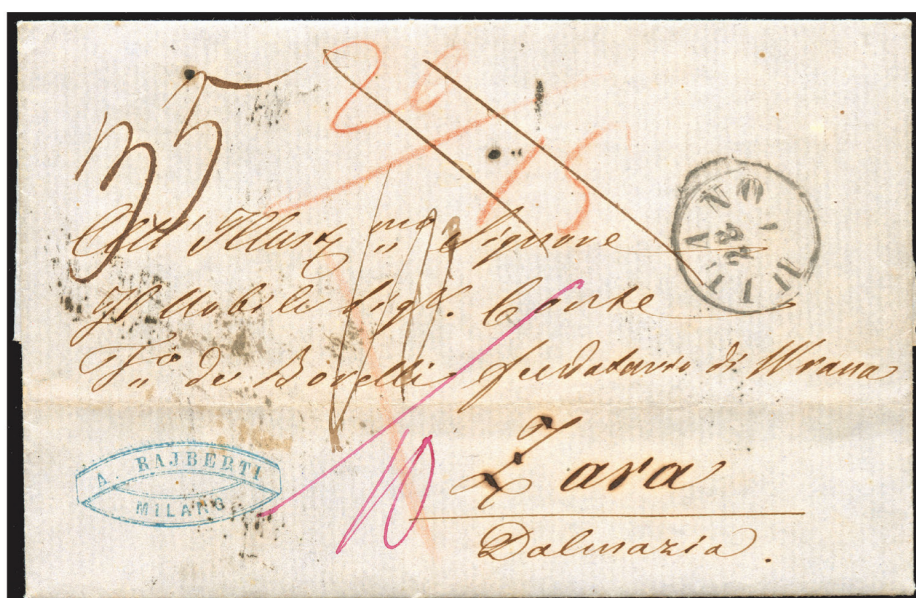 35
20
15
MILANO
28
1
All' Illus.mo Signore
Il Nobile Sigr. Conte
de Borelli feudatario di Wrana
Zara
Dalmazia.
10
A. RAJBERTI
MILANO